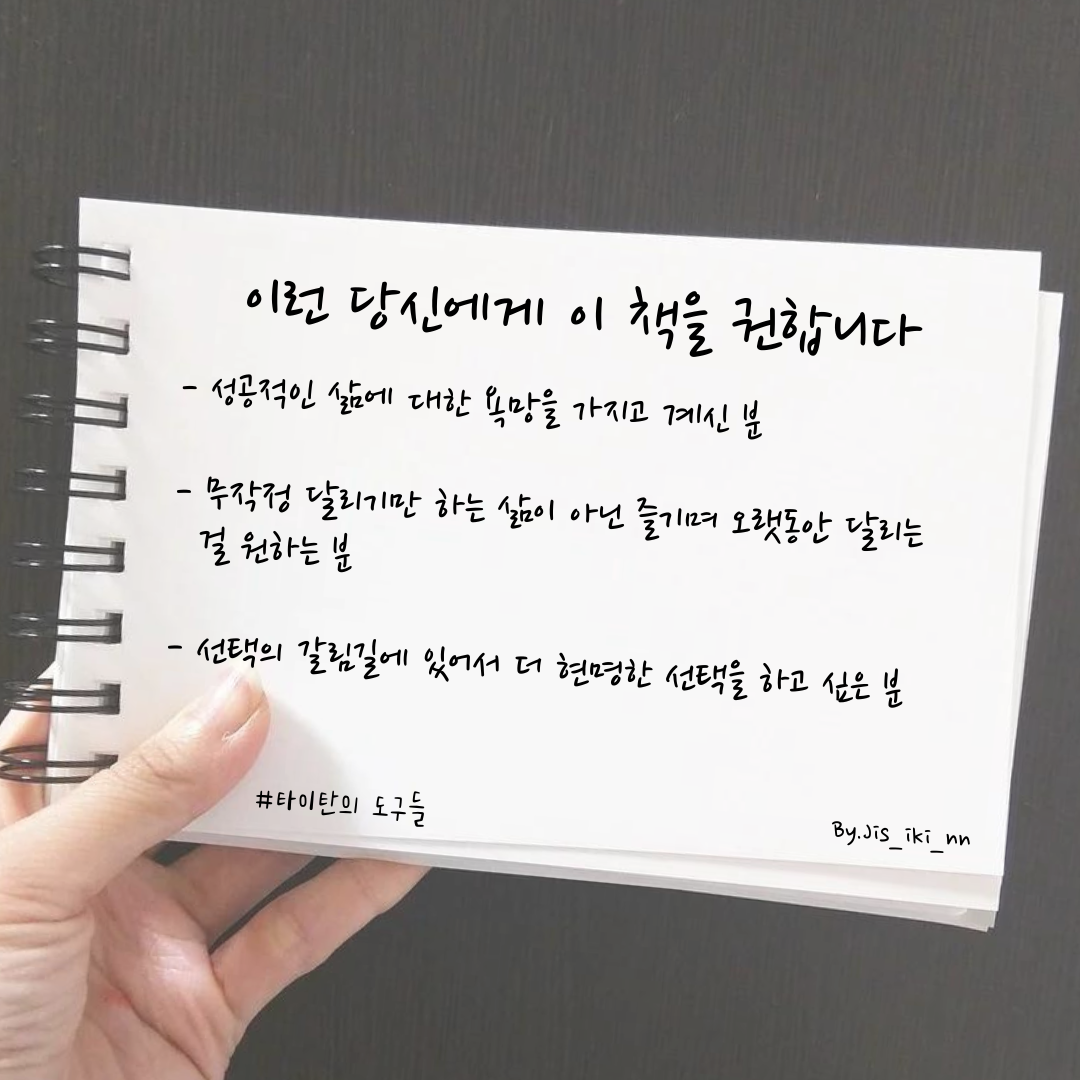 이런 당신에게 이 책을 권합니다
- 성공적인 삶에 대한 욕망을 가지고 계신 분
- 무작정 달리기만 하는 삶이 아닌 즐기며 오랫동안 달리는
걸 원하는 분
- 선택의 갈림길에 있어서 더 현명한 선택을 하고 싶은 분
#타이탄의 도구들
By.Jis_iki_nn